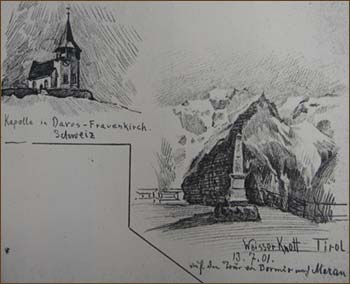 Kapelle in Davos-Frauenkirch.
Schweiz
Weisser Knott Tirol
13.7.01.
auf der Tour Bormio nach Meran